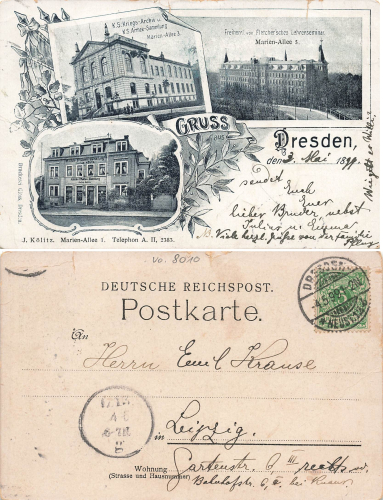 K.S. Kriegs-Archiv u.
K.S. Armee-Sammlung
Marien-Allee 3.
Freiherrl. von Fletcher'sches Lehrerseminar
Marien-Allee 5.
GRUSS
aus
Dresden,
den 3. Mai 1899.
sendet Euch
Euer
lieber Bruder, nebst
Viele herzl. Grüße von der Familie
J. Kölitz. Marien-Allee 1. Telephon A. II, 2383.
Vo. 8010
DEUTSCHE REICHSPOST.
Postkarte.
An
Herrn Emil Krause
in Leipzig.
Wohnung
(Strasse und Hausnummer)
Gartenstr. 6, III
rechts
Bahnhofstr.
bei
DRESDEN